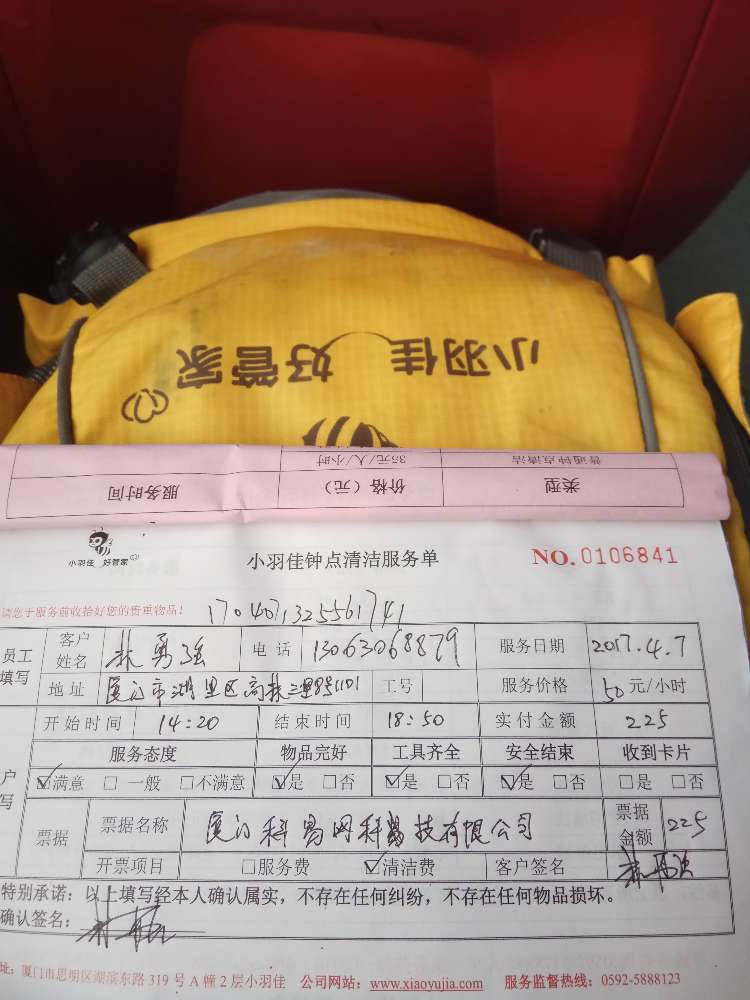 小羽佳 好管家
普通钟点清洁 35元/人/小时
类型 价格（元） 服务时间
小羽佳 好管家
小羽佳钟点清洁服务单 NO.0106841
请您于服务前收拾好您的贵重物品！
员工填写 客户姓名 林勇强 电话 13063068879 服务日期 2017.4.7
地址 厦门市湖里区高林三里8号1101 工号 服务价格 50元/小时
开始时间 14:20 结束时间 18:50 实付金额 225
服务态度 物品完好 工具齐全 安全结束 收到卡片
户写 ☑满意 □一般 □不满意 ☑是 □否 ☑是 □否 ☑是 □否 □是 □否
票据 票据名称 厦门科易网科技有限公司 票据金额 225
开票项目 □服务费 ☑清洁费 客户签名
特别承诺：以上填写经本人确认属实，不存在任何纠纷，不存在任何物品损坏。
确认签名：
址：厦门市思明区湖滨东路 319 号 A 幢 2 层小羽佳 公司网站：www.xiaoyujia.com 服务监督热线：0592-5888123